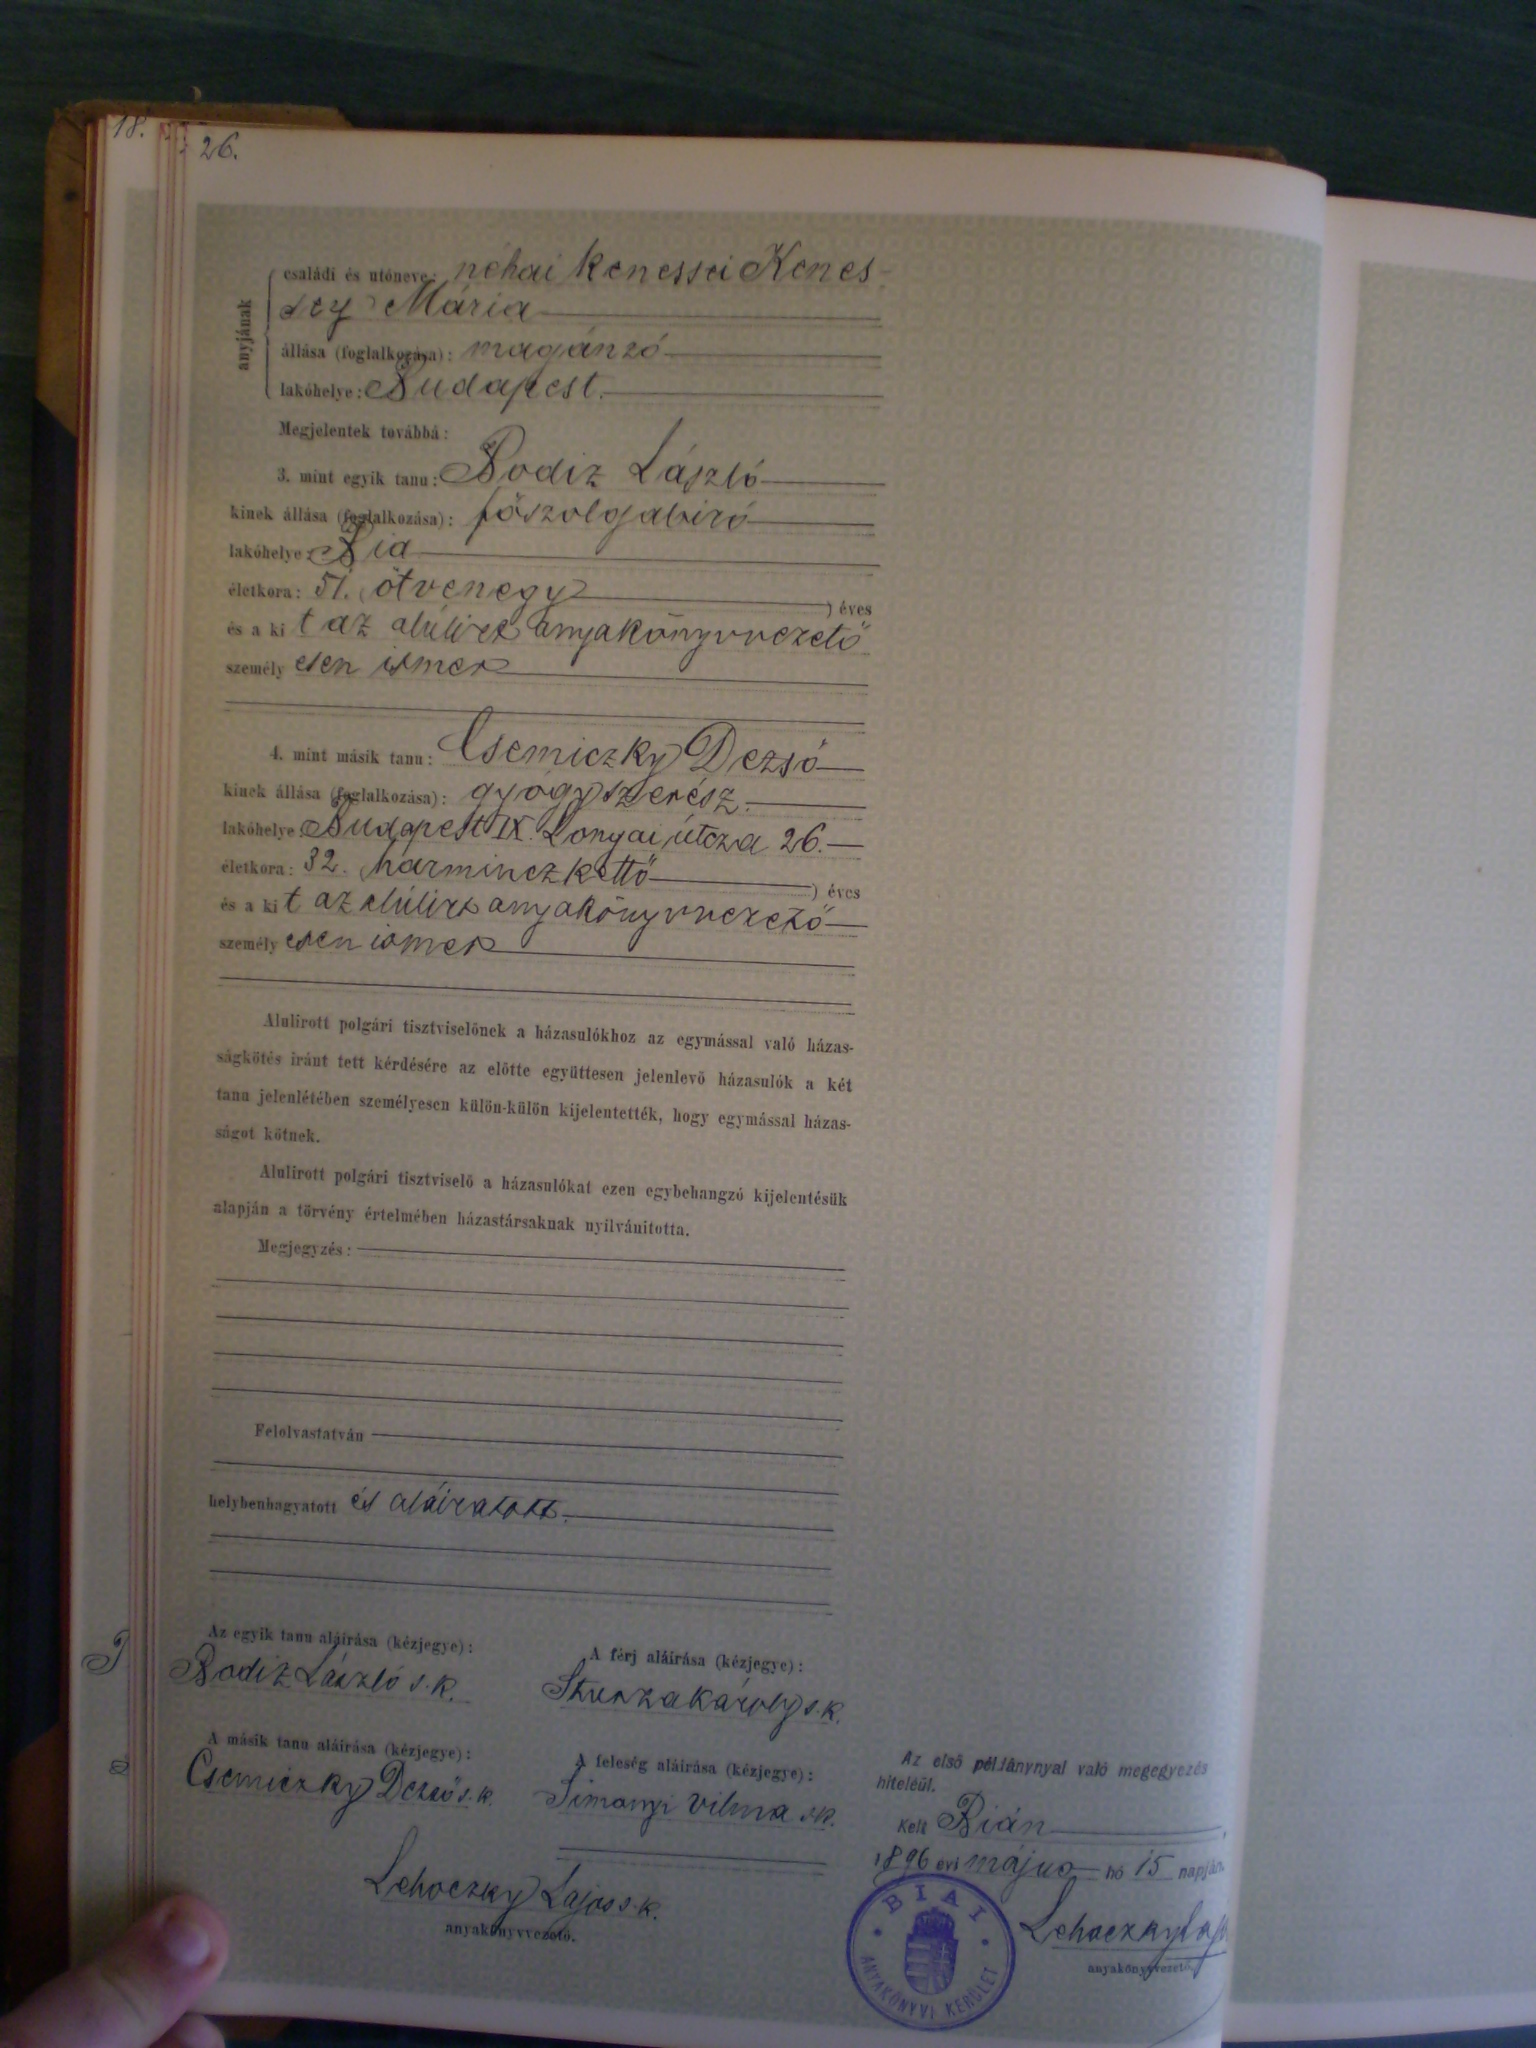 18.
26.
anyjának
családi és utóneve: néhai kenessei Kenes-
sey Mária
állása (foglalkozása): magánzó
lakóhelye: Budapest.
Megjelentek továbbá:
3. mint egyik tanu: Bodiz László
kinek állása (foglalkozása): főszolgabiró
lakóhelye: Bia
életkora: 51. (ötvenegy ) éves
és a ki t az alúlirt anyakönyvvezető
személy esen ismer
4. mint másik tanu: Csemiczky Dezső
kinek állása (foglalkozása): gyógyszerész.
lakóhelye: Budapest IX. Lonyai útcza 26.
életkora: 32. harminczkettő ) éves
és a ki t az alúlirt anyakönyvvezető
személy esen ismer
Alulirott polgári tisztviselőnek a házasulókhoz az egymással való házas-
ságkötés iránt tett kérdésére az előtte együttesen jelenlevő házasulók a két
tanu jelenlétében személyesen külön-külön kijelentették, hogy egymással házas-
ságot kötnek.
Alulirott polgári tisztviselő a házasulókat ezen egybehangzó kijelentésük
alapján a törvény értelmében házastársaknak nyilvánitotta.
Megjegyzés:
Felolvastatván
helybenhagyatott és aláiratott.
Az egyik tanu aláírása (kézjegye): A férj aláírása (kézjegye):
Bodiz László s.k. Sturza károly s.k.
A másik tanu aláírása (kézjegye): A feleség aláírása (kézjegye):
Csemiczky Dezső s.k. Simonyi vilma s.k.
Lehoczky Lajos s.k.
anyakönyvvezető.
Az első példánynyal való megegyezés
hiteléül.
Kelt Bián
1896 évi május hó 15 napján.
Lehoczky Lajos
anyakönyvvezető
BIAI
ANYAKÖNYVI KERÜLET